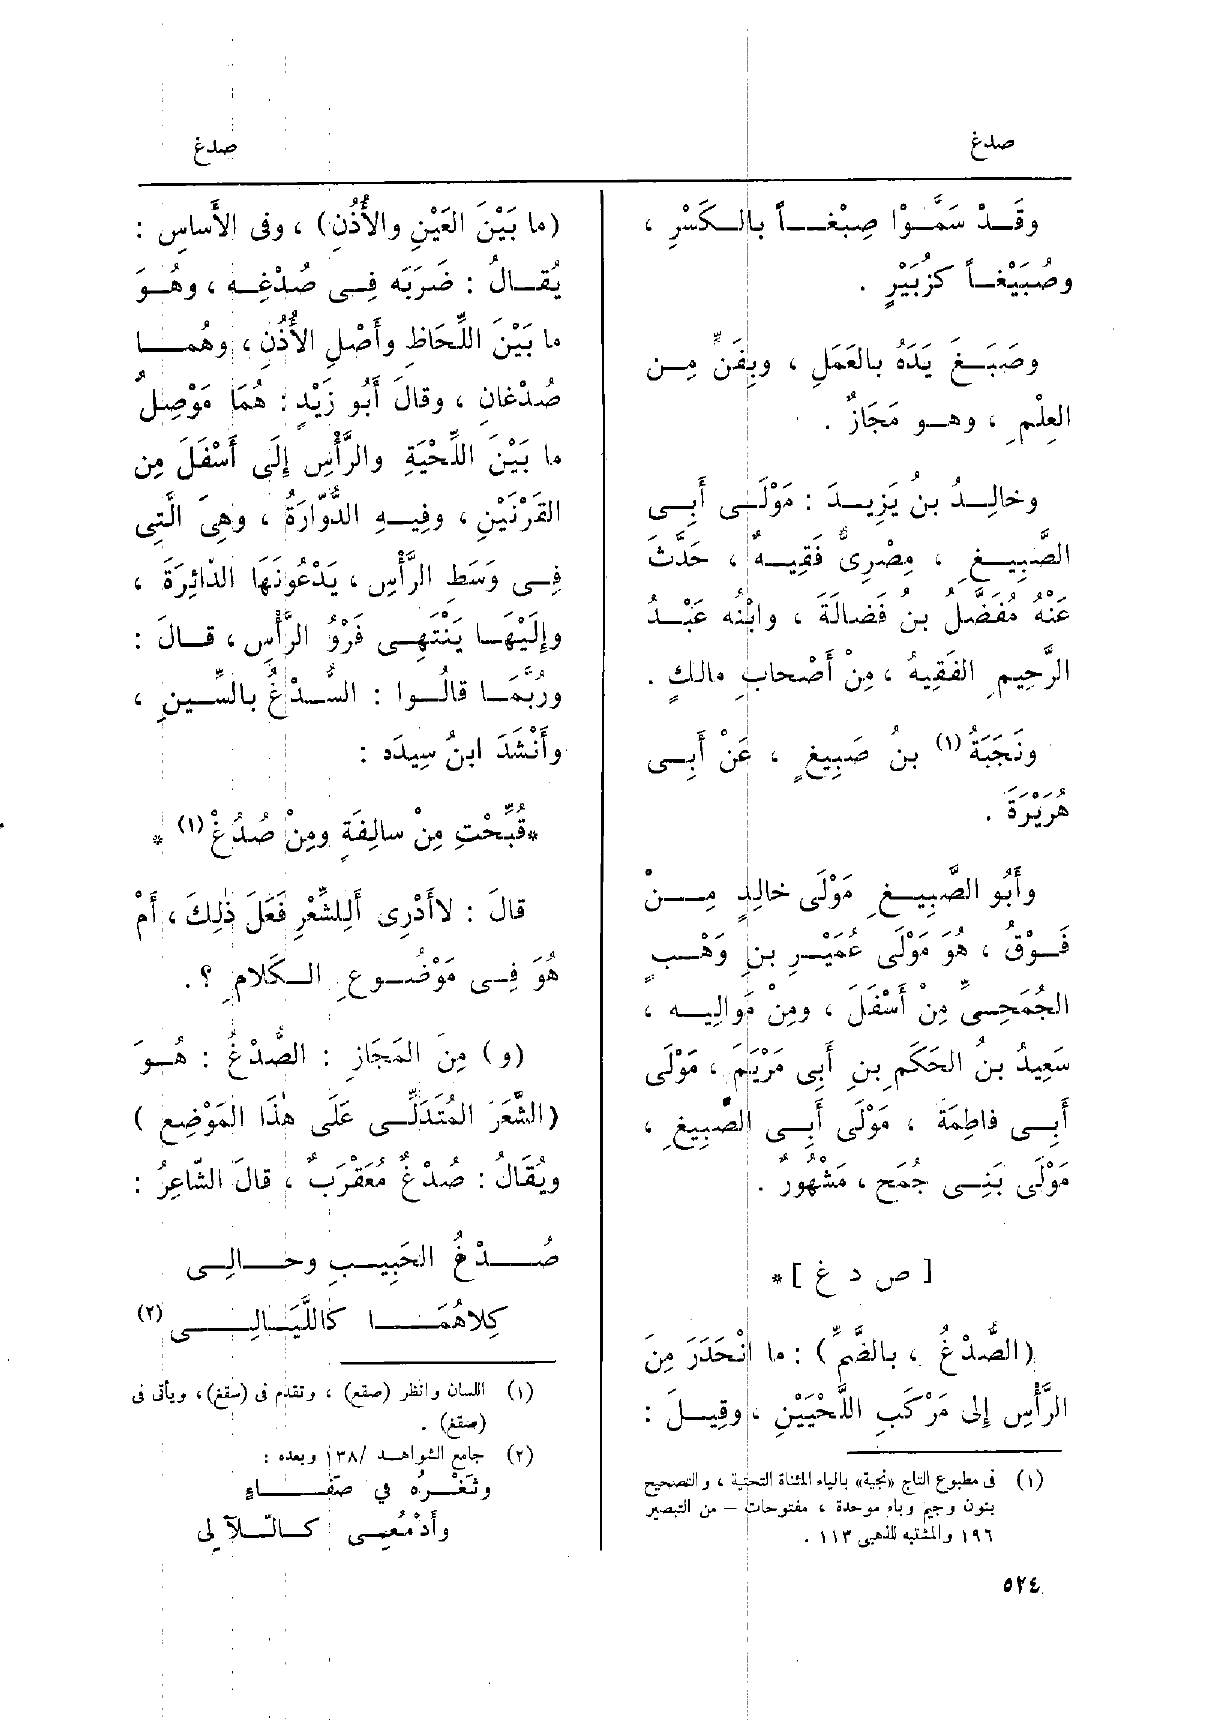 صدغ
صدغ
وقَدْ سَمَّوْا صِبْغاً بالكَسْرِ ،
وصُبَيْغاً كزُبَيْرٍ .
وصَبَغَ يَدَه بالعَمَلِ ، وبِفَنٍّ مِن
العِلْمِ ، وهو مَجَازٌ .
وخالِدُ بنُ يَزِيدَ : مَوْلَى أَبِى
الصَّبِيغِ ، مِصْرِىٌّ فَقِيهٌ ، حَدَّثَ
عَنْهُ مُفَضَّلُ بنُ فَضالَةَ ، وابْنُه عَبْدُ
الرَّحِيمِ الفَقِيهُ ، مِنْ أَصْحابِ مالكٍ .
ونَجَبَةُ (١) بنُ صَبِيغٍ ، عَنْ أَبِى
هُرَيْرَةَ .
وأَبُو الصَّبِيغِ مَوْلَى خالِدٍ مِنْ
فَوْقُ ، هُوَ مَوْلَى عُمَيْرِ بنِ وَهْبٍ
الجُمَحِىِّ مِنْ أَسْفَلَ ، ومِنْ مَوالِيه ،
سَعِيدُ بنُ الحَكَمِ بنِ أَبِى مَرْيَمَ ، مَوْلَى
أَبِى فاطِمَةَ ، مَوْلَى أَبِى الصَّبِيغِ ،
مَوْلَى بَنِى جُمَح ، مَشْهُورٌ .
[ ص د غ ] *
(الصُّدْغُ ، بالضَّمِّ) : ما انْحَدَرَ مِنَ
الرَّأْسِ إِلى مَرْكَبِ اللَّحْيَيْنِ ، وقِيلَ :
(١) فى مطبوع التاج «نجية» بالياء المثناة التحتية ، والتصحيح
بنون وجيم وباء موحدة ، مفتوحات – من التبصير
١٩٦ والمشتبه للذهبى ١١٣ .
٥٢٤
(ما بَيْنَ العَيْنِ والأُذُنِ) ، وفى الأَساسِ :
يُقالُ : ضَرَبَه فِى صُدْغِه ، وهُوَ
ما بَيْنَ اللِّحَاظِ وأَصْلِ الأُذُنِ ، وهُما
صُدْغانِ ، وقالَ أَبُو زَيْدٍ : هُمَا مَوْصِلُ
ما بَيْنَ اللِّحْيَةِ والرَّأْسِ إِلَى أَسْفَلَ مِن
القَرْنَيْنِ ، وفِيهِ الدُّوّارَةُ ، وهِىَ الَّتِى
فِى وَسَطِ الرَّأْسِ ، يَدْعُونَهَا الدّائِرَةَ ،
وإِلَيْهَا يَنْتَهِى فَرْوُ الرَّأْسِ ، قالَ :
ورُبَّمَا قالُوا : السُّدْغُ بالسِّينِ ،
وأَنْشَدَ ابنُ سِيدَه :
*قُبِّحْتِ مِنْ سالِفَةٍ ومِنْ صُدُغْ (١) *
قالَ : لاأَدْرِى أَلِلشِّعْرِ فَعَلَ ذٰلِكَ ، أَمْ
هُوَ فِى مَوْضُوعِ الكَلامِ ؟ .
(و) مِنَ المَجَازِ : الصُّدْغُ : هُوَ
(الشَّعَرَ المُتَدَلِّى عَلَى هٰذَا المَوْضِعِ )
ويُقَالُ : صُدْغٌ مُعَقْرَبٌ ، قالَ الشّاعِرُ :
صُدْغُ الحَبِيبِ وحالِى
كِلاهُمَا كَاللَّيَالِى (٢)
(١) اللسان وانظر (صقع) ، وتقدم فى (سقغ) ، ويأتى فى
(صقغ) .
(٢) جامع الشواهد /١٣٨ وبعده :
وثَغْرُه في صَفَاءٍ
وأَدْمُعِى كالّلآلِى